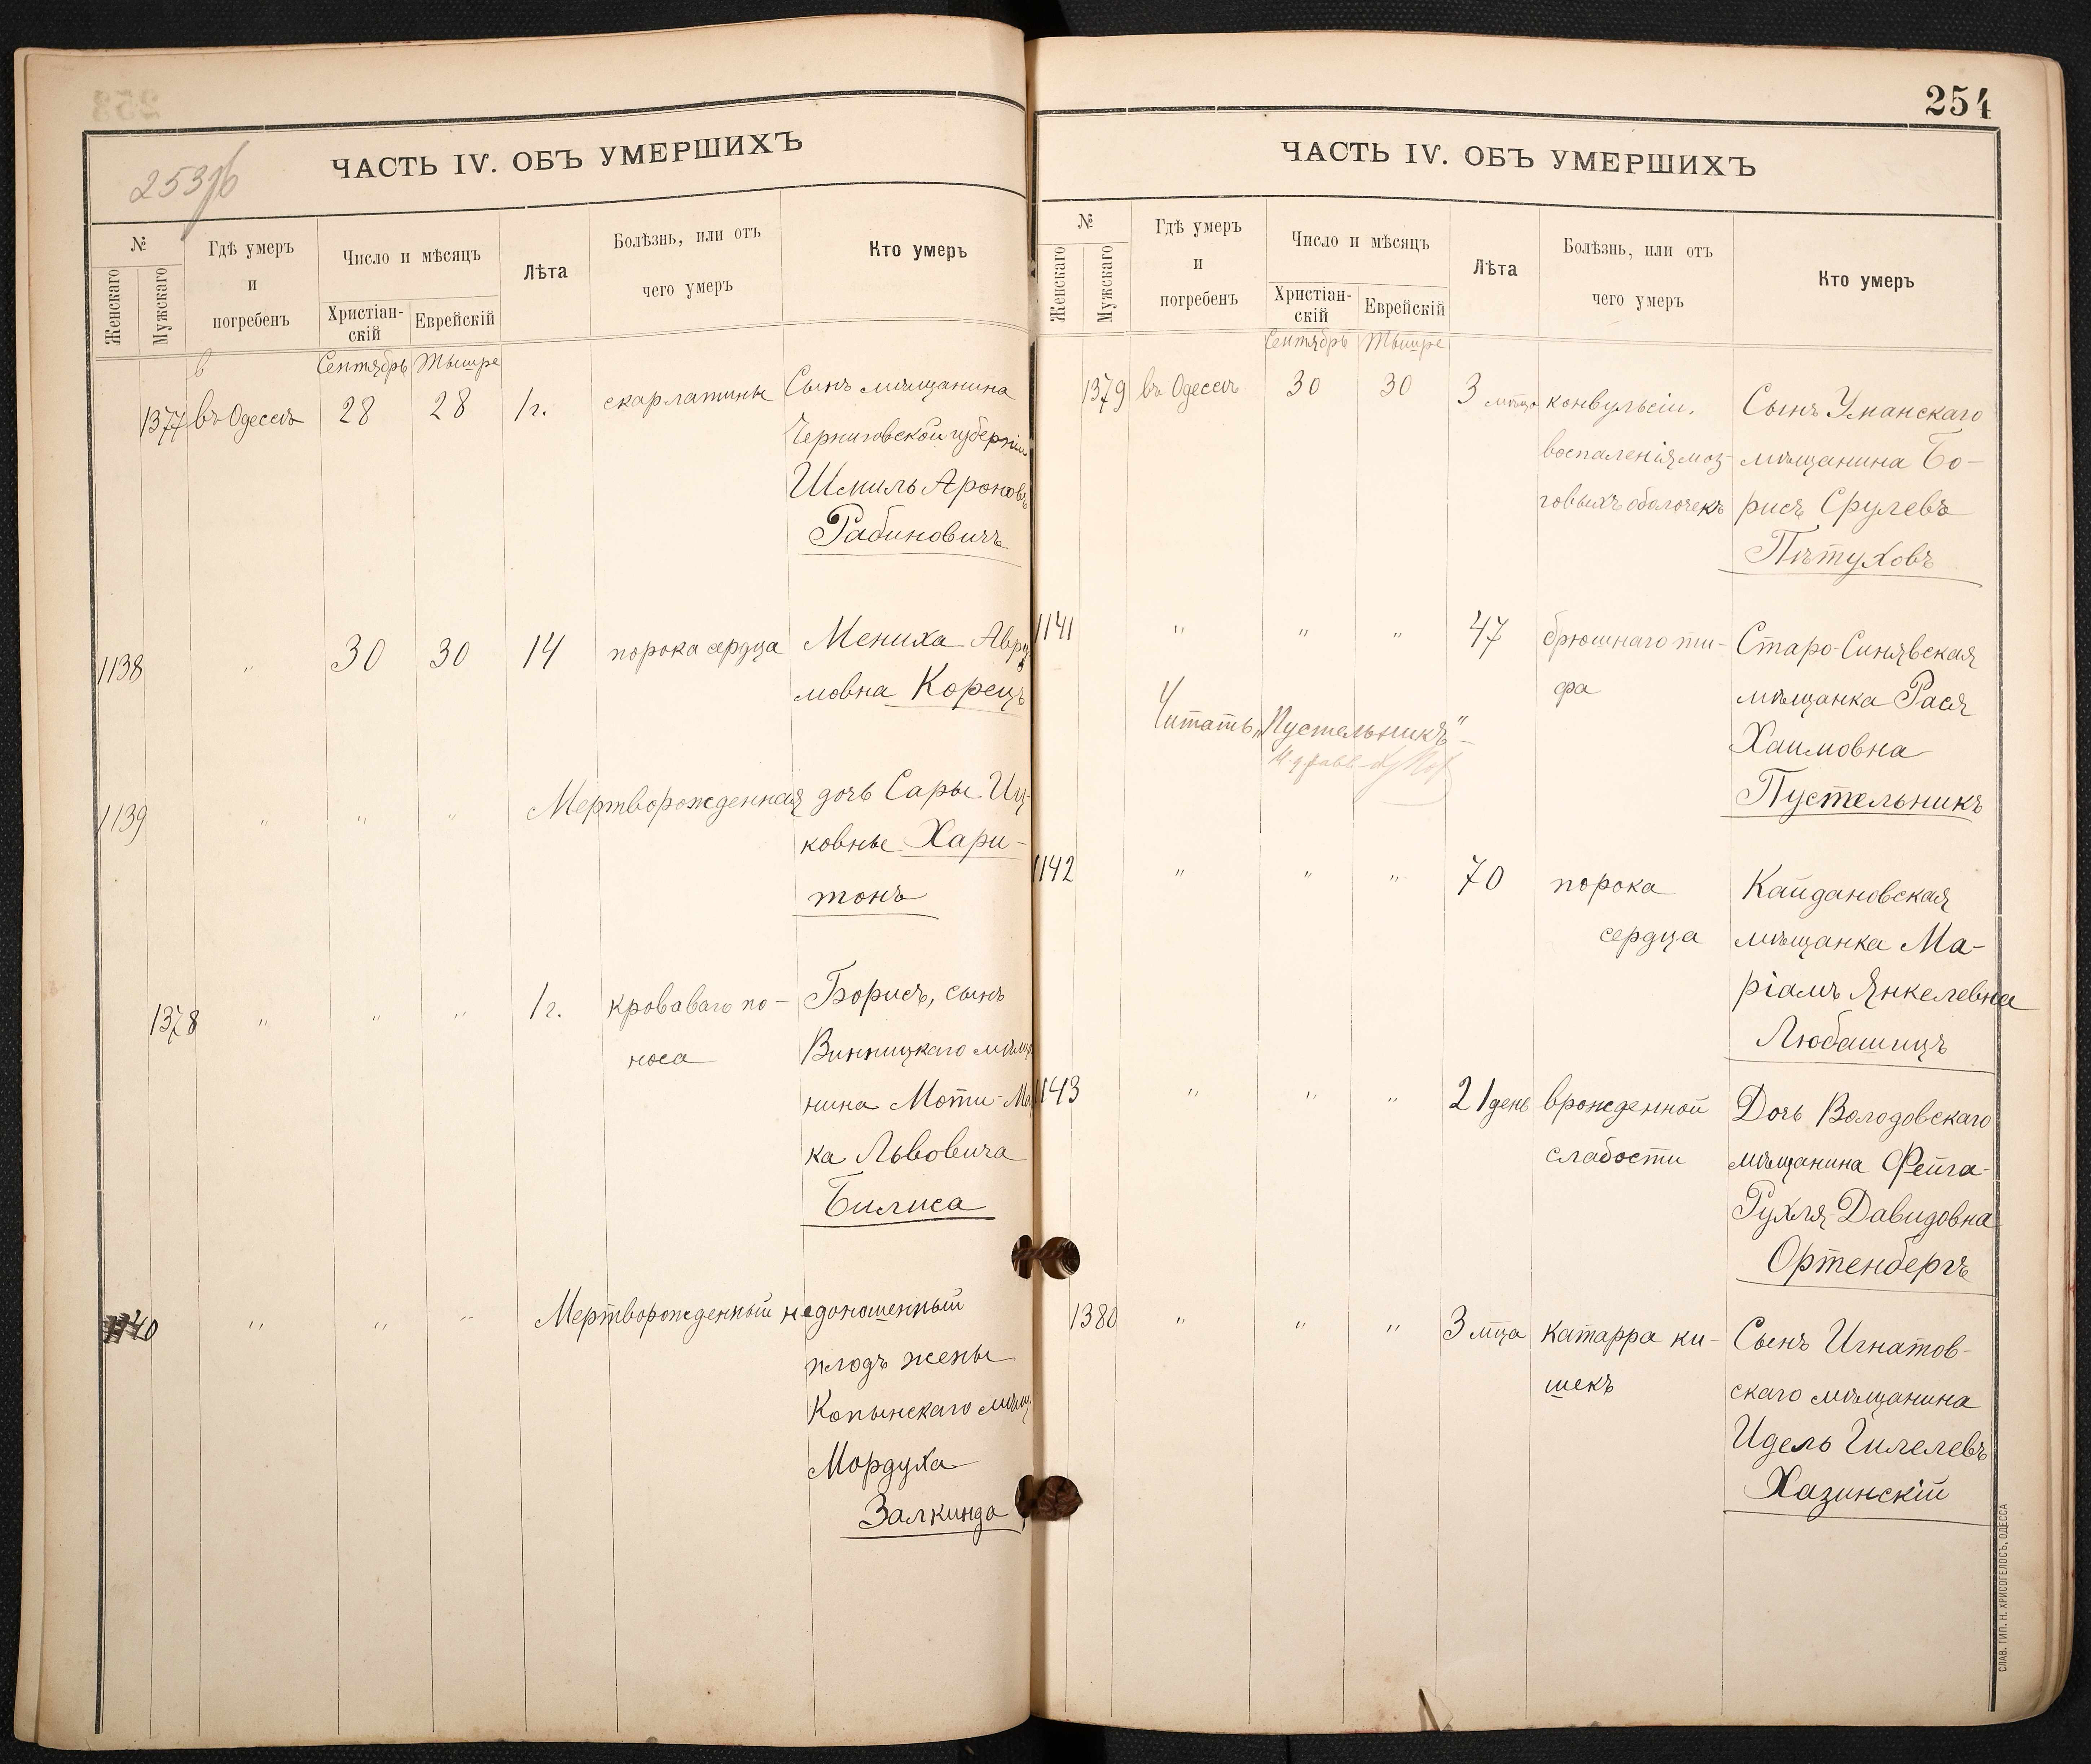 253
ЧАСТЬ IV. ОБЪ УМЕРШИХЪ
№
Женскаго
Мужскаго
Гдѣ умеръ
и
погребенъ
Число и мѣсяцъ
Христіан-
скій
Еврейскій
Лѣта
Болѣзнь, или отъ
чего умеръ
Кто умеръ
Сентябрь Тышре
1377 въ Одессѣ 28 28 1 г. скарлатины Сынъ мѣщанина
Черниговской губерніи
Шмиль Ароновъ
Рабиновичъ
1138 " 30 30 14 порока сердца Мениха Авру-
мовна Корецъ
1139 " " " Мертворожденная дочь Сары Иц-
ковны Хари-
тонъ
1378 " " " 1 г. кроваваго по- Борисъ, сынъ
носа Винницкаго мѣща
нина Моти-Ма
ка Львовича
Билиса
1140 " " " Мертворожденный недоношенный
плодъ жены
Копынскаго мѣщ.
Мордуха
Залкинда
254
ЧАСТЬ IV. ОБЪ УМЕРШИХЪ
№
Женскаго
Мужскаго
Гдѣ умеръ
и
погребенъ
Число и мѣсяцъ
Христіан-
скій
Еврейскій
Лѣта
Болѣзнь, или отъ
чего умеръ
Кто умеръ
Сентябрь Тышре
1379 въ Одессѣ 30 30 3 мѣсца конвульсіи. Сынъ Уманскаго
воспаленія моз- мѣщанина Бо-
говыхъ оболочекъ рисъ Срулевъ
Пѣтуховъ
1141 " " " 47 брюшнаго ти- Старо-Синявская
фа мѣщанка Рася
Хаимовна
Пустельникъ
Читать „Пустельникъ"
1142 " " " 70 порока Кайдановская
сердца мѣщанка Ма-
ріамъ Янкелевна
Любашицъ
1143 " " " 21 день врожденной Дочь Володовскаго
слабости мѣщанина Фейга-
Рухля Давидовна
Ортенбергъ
1380 " " " 3 мца катарра ки- Сынъ Игнатов-
шекъ скаго мѣщанина
Идель Гилелевъ
Хазинскій
СЛАВ. ТИП. Н. ХРИСОГЕЛОСЪ, ОДЕССА